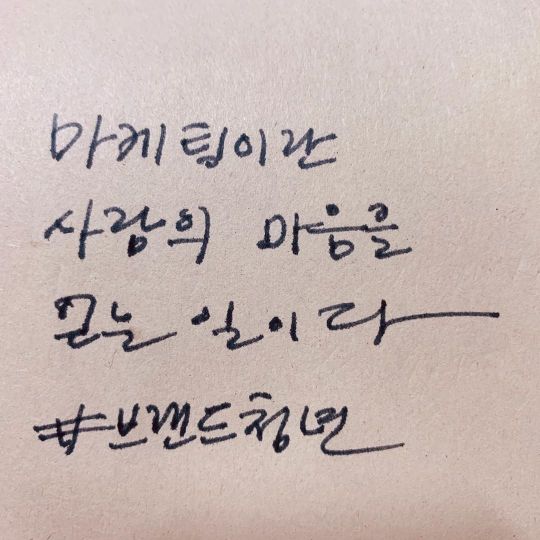 마케팅이란
사람의 마음을
끄는 일이다
#브랜드청년